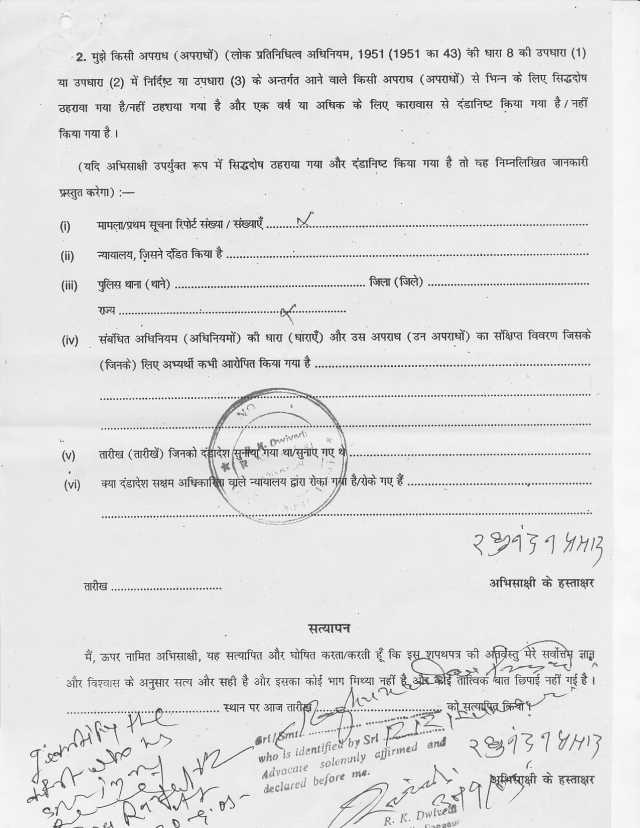 2. मुझे किसी अपराध (अपराधों) (लोक प्रतिनिधित्व अधिनियम, 1951 (1951 का 43) की धारा 8 की उपधारा (1)
या उपधारा (2) में निर्दिष्ट या उपधारा (3) के अन्तर्गत आने वाले किसी अपराध (अपराधों) से भिन्न के लिए सिद्धदोष
ठहराया गया है/नहीं ठहराया गया है और एक वर्ष या अधिक के लिए कारावास से दंडानिष्ट किया गया है / नहीं
किया गया है ।
(यदि अभिसाक्षी उपर्युक्त रूप में सिद्धदोष ठहराया गया और दंडानिष्ट किया गया है तो वह निम्नलिखित जानकारी
प्रस्तुत करेगा) :—
(i) मामला/प्रथम सूचना रिपोर्ट संख्या / संख्याएँ
(ii) न्यायालय, जिसने दंडित किया है
(iii) पुलिस थाना (थाने) जिला (जिले)
राज्य
(iv) संबंधित अधिनियम (अधिनियमों) की धारा (धाराएँ) और उस अपराध (उन अपराधों) का संक्षिप्त विवरण जिसके
(जिनके) लिए अभ्यर्थी कभी आरोपित किया गया है
R. K. Dwivedi
(v) तारीख (तारीखें) जिनको दंडादेश सुनाया गया था/सुनाए गए थे
(vi) क्या दंडादेश सक्षम अधिकारिता वाले न्यायालय द्वारा रोका गया है/रोके गए हैं
रघुनंदन प्रसाद
तारीख अभिसाक्षी के हस्ताक्षर
सत्यापन
मैं, ऊपर नामित अभिसाक्षी, यह सत्यापित और घोषित करता/करती हूँ कि इस शपथपत्र की अंतर्वस्तु मेरे सर्वोत्तम ज्ञान
और विश्वास के अनुसार सत्य और सही है और इसका कोई भाग मिथ्या नहीं है और कोई तात्विक बात छिपाई नहीं गई है ।
स्थान पर आज तारीख को सत्यापित किया
Sri/Smt.
who is identified by Sri
Advocate solemnly affirmed and
declared before me.
रघुनंदन प्रसाद
अभिसाक्षी के हस्ताक्षर
R. K. Dwivedi